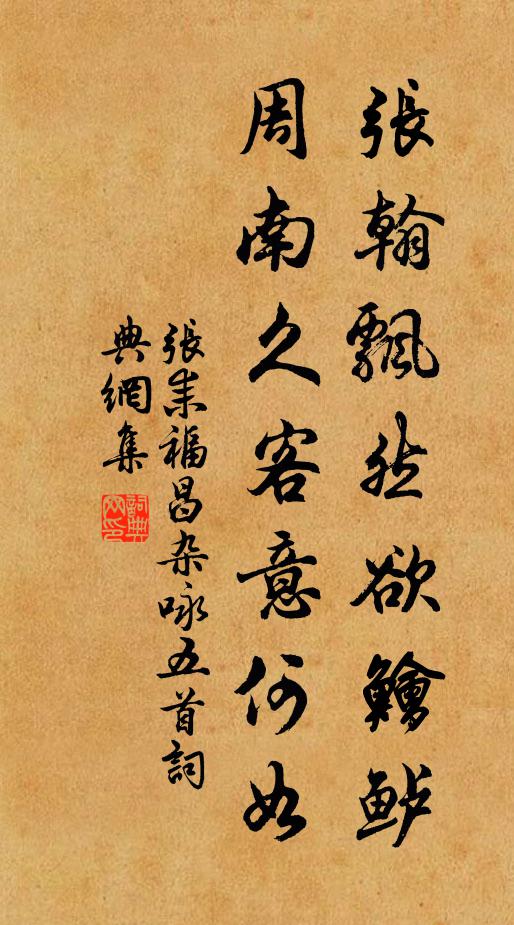 張翰飄然欲鱠鲈
周南久客意何如
張耒福昌杂咏五首詞
典網集
詞典網印